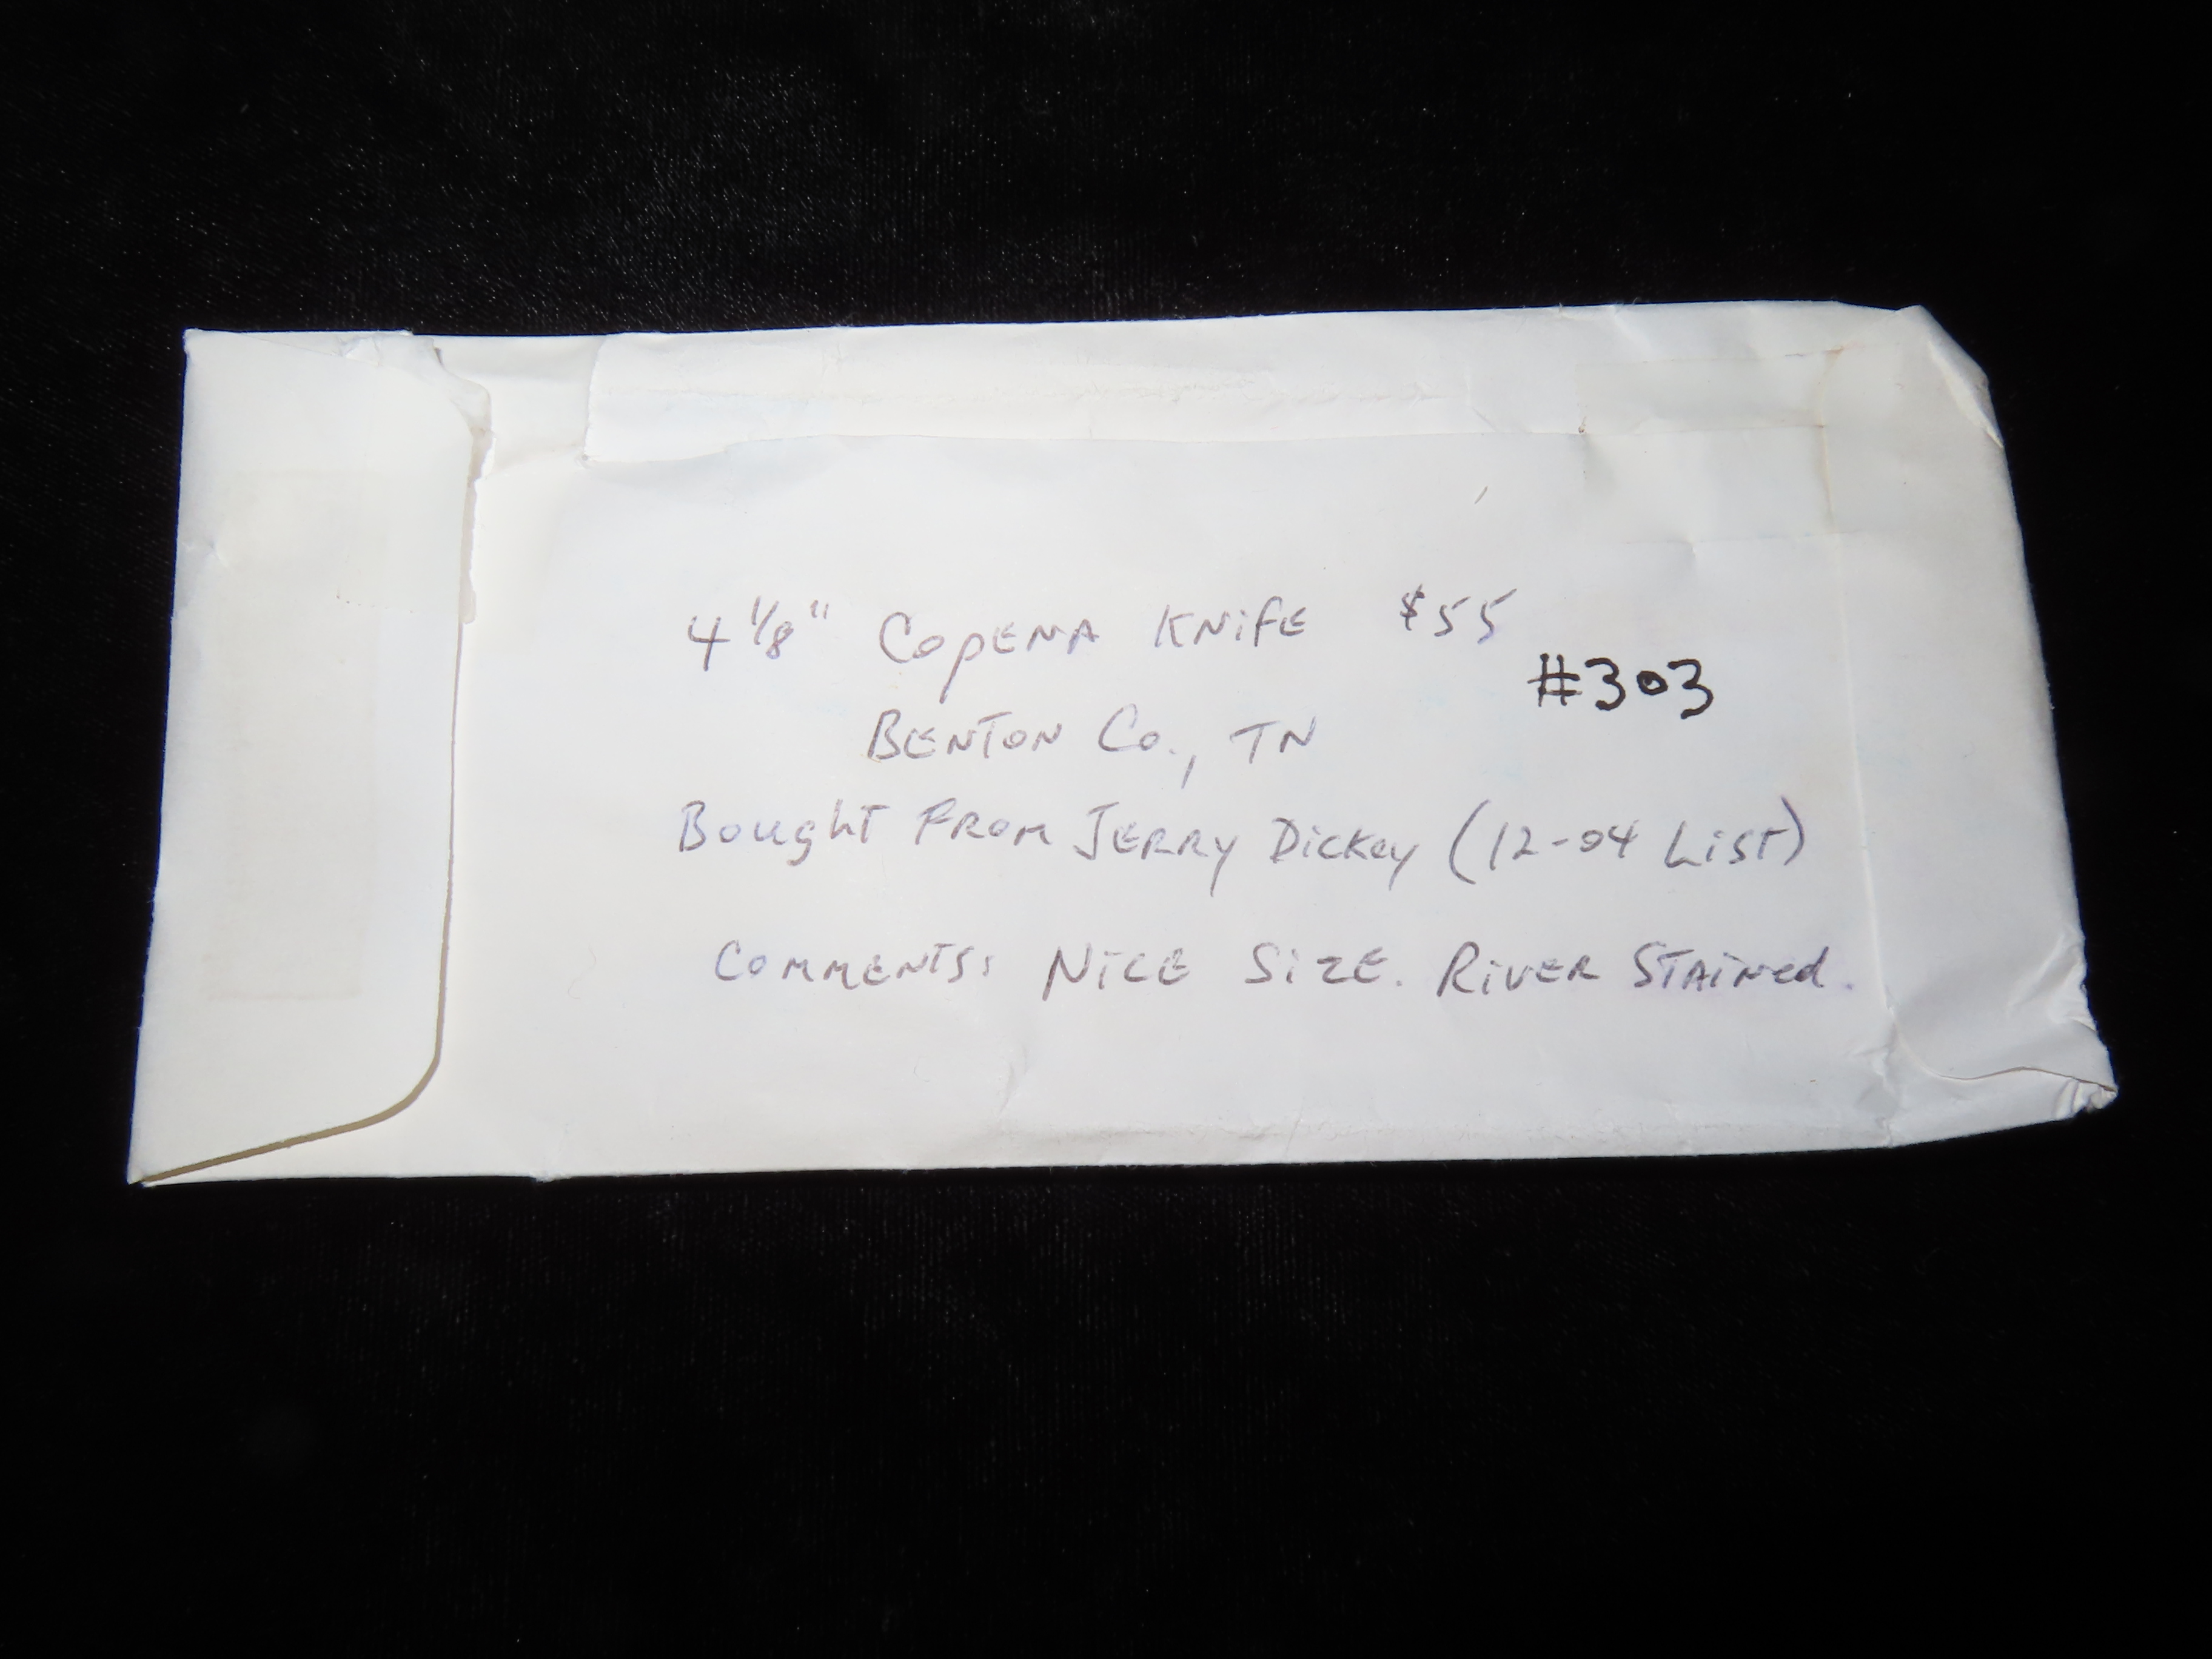 4 1/8" Copena Knife $55
#303
Benton Co., TN
Bought From Jerry Dickey (12-04 List)
Comments: Nice Size. River Stained.